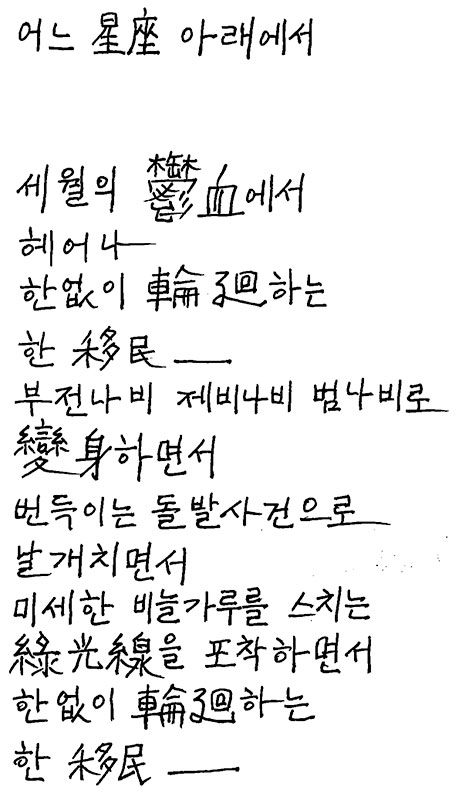 어느 星座 아래에서
세월의 鬱血에서
헤어나
한없이 輪廻하는
한 移民 ——
부전나비 제비나비 범나비로
變身하면서
번득이는 돌발사건으로
날개치면서
미세한 비늘가루를 스치는
綠光線을 포착하면서
한없이 輪廻하는
한 移民 ——